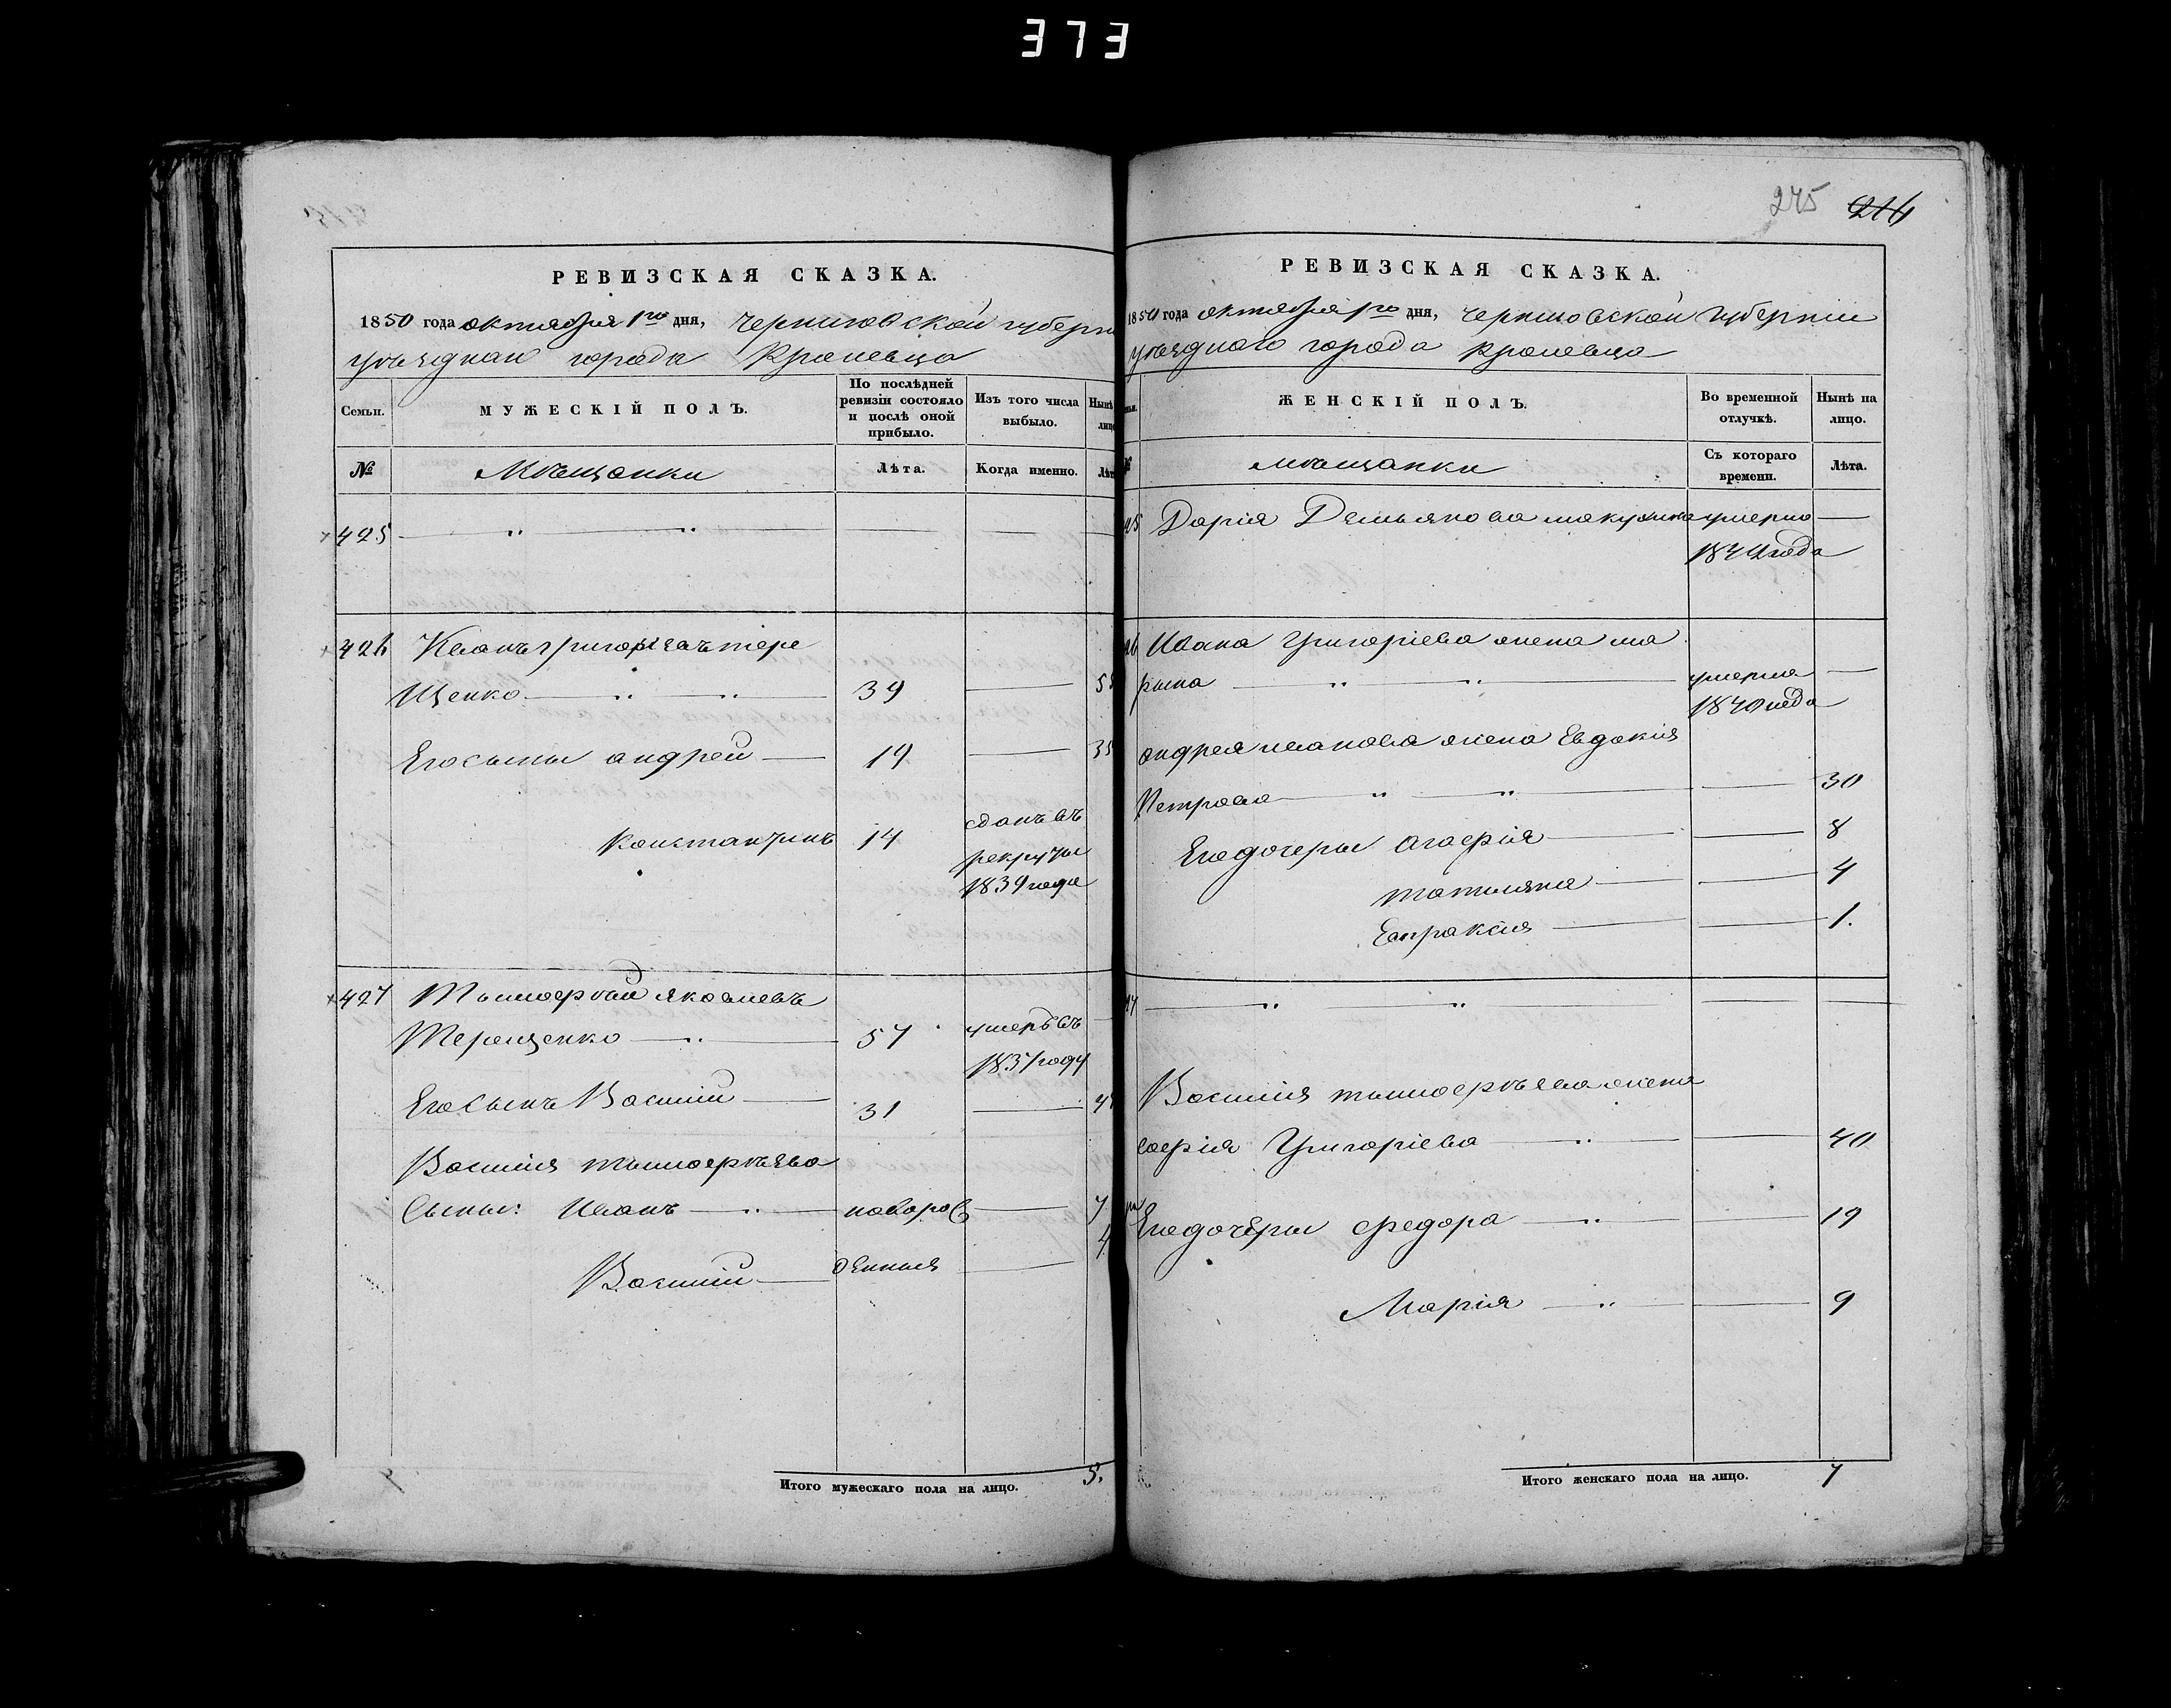 373
РЕВИЗСКАЯ СКАЗКА.
1850 года октября 1го дня, Черниговской губерн
уѣзднаго города Кролевца
Семьи.
МУЖЕСКІЙ ПОЛЪ.
По послѣдней ревизіи состояло и послѣ оной прибыло.
Изъ того числа выбыло.
Нынѣ
лицо
№
Мѣщанки
Лѣта.
Когда именно.
Лѣт
425
426 Иванъ Григорьевъ Тере
щенко 39
Его сыны Андрей 19
Константинъ 14 сданъ въ
рекруты
1839 года
427 Тимоѳей Яковлевъ
Терещенко 57 умеръ въ
1837 году
Его сынъ Василій 31
Василія Тимоѳѣева
Сыны: Иванъ новорож 7
Василій денныя 4
Итого мужескаго пола на лицо. 5.
275 216
РЕВИЗСКАЯ СКАЗКА.
1850 года октября 1го дня, Черниговской Губерніи
уѣзднаго города Кролевца
ЖЕНСКІЙ ПОЛЪ.
Во временной отлучкѣ.
Нынѣ на лицо.
мѣщанки
Съ котораго времени.
Лѣта.
Дарія Демьянова умерла
Ивана Григоріева жена Ма
рина умерла
1840 года
Андрея Иванова жена Евдокія
Петрова 30
Его дочеры Агафія 8
Татияна 4
Евпраксія 1.
Василія Тимоѳѣева жена
Софія Григоріева 40
Его дочеры Федора 19
Марія 9
Итого женскаго пола на лицо. 7